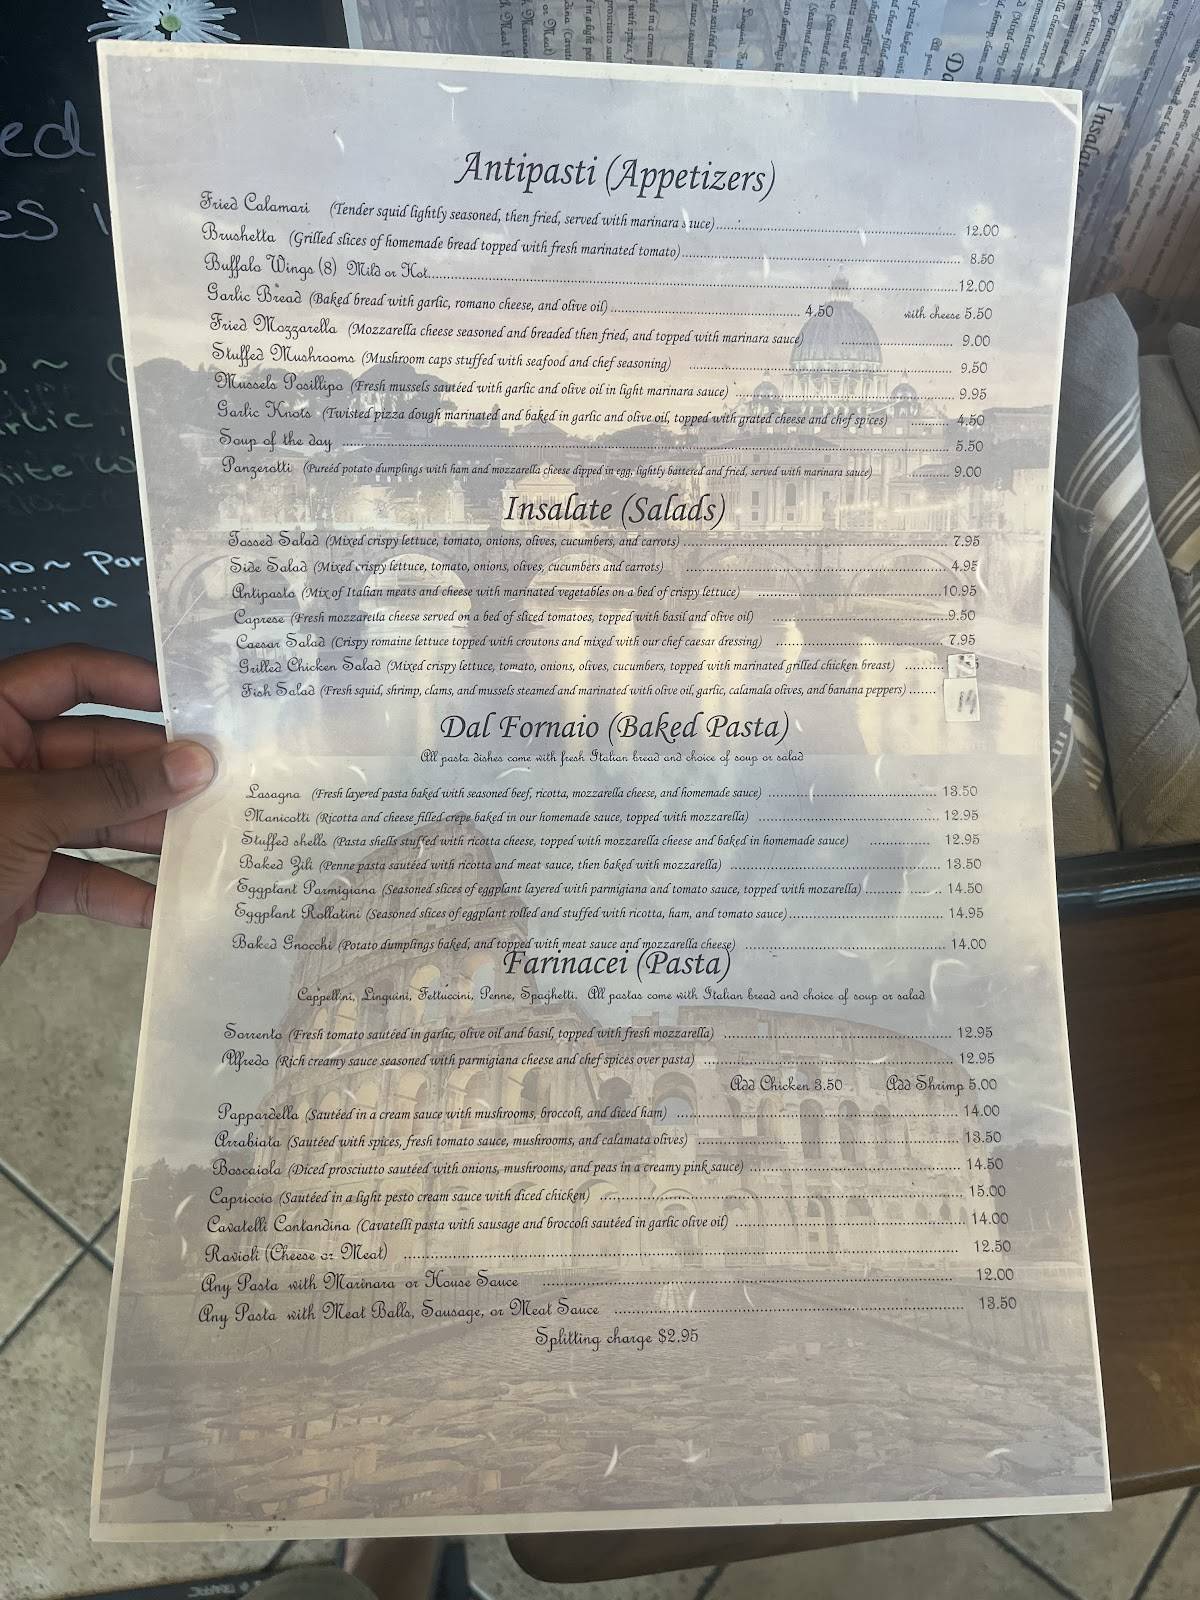 Antipasti (Appetizers)
Fried Calamari (Tender squid lightly seasoned, then fried, served with marinara sauce) 12.00
Brushetta (Grilled slices of homemade bread topped with fresh marinated tomato) 8.50
Buffalo Wings (8) Mild or Hot 12.00
Garlic Bread (Baked bread with garlic, romano cheese, and olive oil) 4.50 with cheese 5.50
Fried Mozzarella (Mozzarella cheese seasoned and breaded then fried, and topped with marinara sauce) 9.00
Stuffed Mushrooms (Mushroom caps stuffed with seafood and chef seasoning) 9.50
Mussels Posillipo (Fresh mussels sautéed with garlic and olive oil in light marinara sauce) 9.95
Garlic Knots (Twisted pizza dough marinated and baked in garlic and olive oil, topped with grated cheese and chef spices) 4.50
Soup of the day 5.50
Panzerotti (Pureéd potato dumplings with ham and mozzarella cheese dipped in egg, lightly battered and fried, served with marinara sauce) 9.00
Insalate (Salads)
Tossed Salad (Mixed crispy lettuce, tomato, onions, olives, cucumbers, and carrots) 7.95
Side Salad (Mixed crispy lettuce, tomato, onions, olives, cucumbers and carrots) 4.95
Antipasto (Mix of Italian meats and cheese with marinated vegetables on a bed of crispy lettuce) 10.95
Caprese (Fresh mozzarella cheese served on a bed of sliced tomatoes, topped with basil and olive oil) 9.50
Caesar Salad (Crispy romaine lettuce topped with croutons and mixed with our chef caesar dressing) 7.95
Grilled Chicken Salad (Mixed crispy lettuce, tomato, onions, olives, cucumbers, topped with marinated grilled chicken breast)
Fish Salad (Fresh squid, shrimp, clams, and mussels steamed and marinated with olive oil, garlic, calamala olives, and banana peppers)
Dal Fornaio (Baked Pasta)
All pasta dishes come with fresh Italian bread and choice of soup or salad
Lasagna (Fresh layered pasta baked with seasoned beef, ricotta, mozzarella cheese, and homemade sauce) 13.50
Manicotti (Ricotta and cheese filled crepe baked in our homemade sauce, topped with mozzarella) 12.95
Stuffed shells (Pasta shells stuffed with ricotta cheese, topped with mozzarella cheese and baked in homemade sauce) 12.95
Baked Ziti (Penne pasta sautéed with ricotta and meat sauce, then baked with mozzarella) 13.50
Eggplant Parmigiana (Seasoned slices of eggplant layered with parmigiana and tomato sauce, topped with mozarella) 14.50
Eggplant Rollatini (Seasoned slices of eggplant rolled and stuffed with ricotta, ham, and tomato sauce) 14.95
Baked Gnocchi (Potato dumplings baked, and topped with meat sauce and mozzarella cheese) 14.00
Farinacei (Pasta)
Cappellini, Linguini, Fettuccini, Penne, Spaghetti. All pastas come with Italian bread and choice of soup or salad
Sorrento (Fresh tomato sautéed in garlic, olive oil and basil, topped with fresh mozzarella) 12.95
Alfredo (Rich creamy sauce seasoned with parmigiana cheese and chef spices over pasta) 12.95
Add Chicken 3.50 Add Shrimp 5.00
Pappardella (Sautéed in a cream sauce with mushrooms, broccoli, and diced ham) 14.00
Arrabiata (Sautéed with spices, fresh tomato sauce, mushrooms, and calamata olives) 13.50
Boscaiola (Diced prosciutto sautéed with onions, mushrooms, and peas in a creamy pink sauce) 14.50
Capriccio (Sautéed in a light pesto cream sauce with diced chicken) 15.00
Cavatelli Contandina (Cavatelli pasta with sausage and broccoli sautéed in garlic olive oil) 14.00
Ravioli (Cheese or Meat) 12.50
Any Pasta with Marinara or House Sauce 12.00
Any Pasta with Meat Balls, Sausage, or Meat Sauce 13.50
Splitting charge $2.95